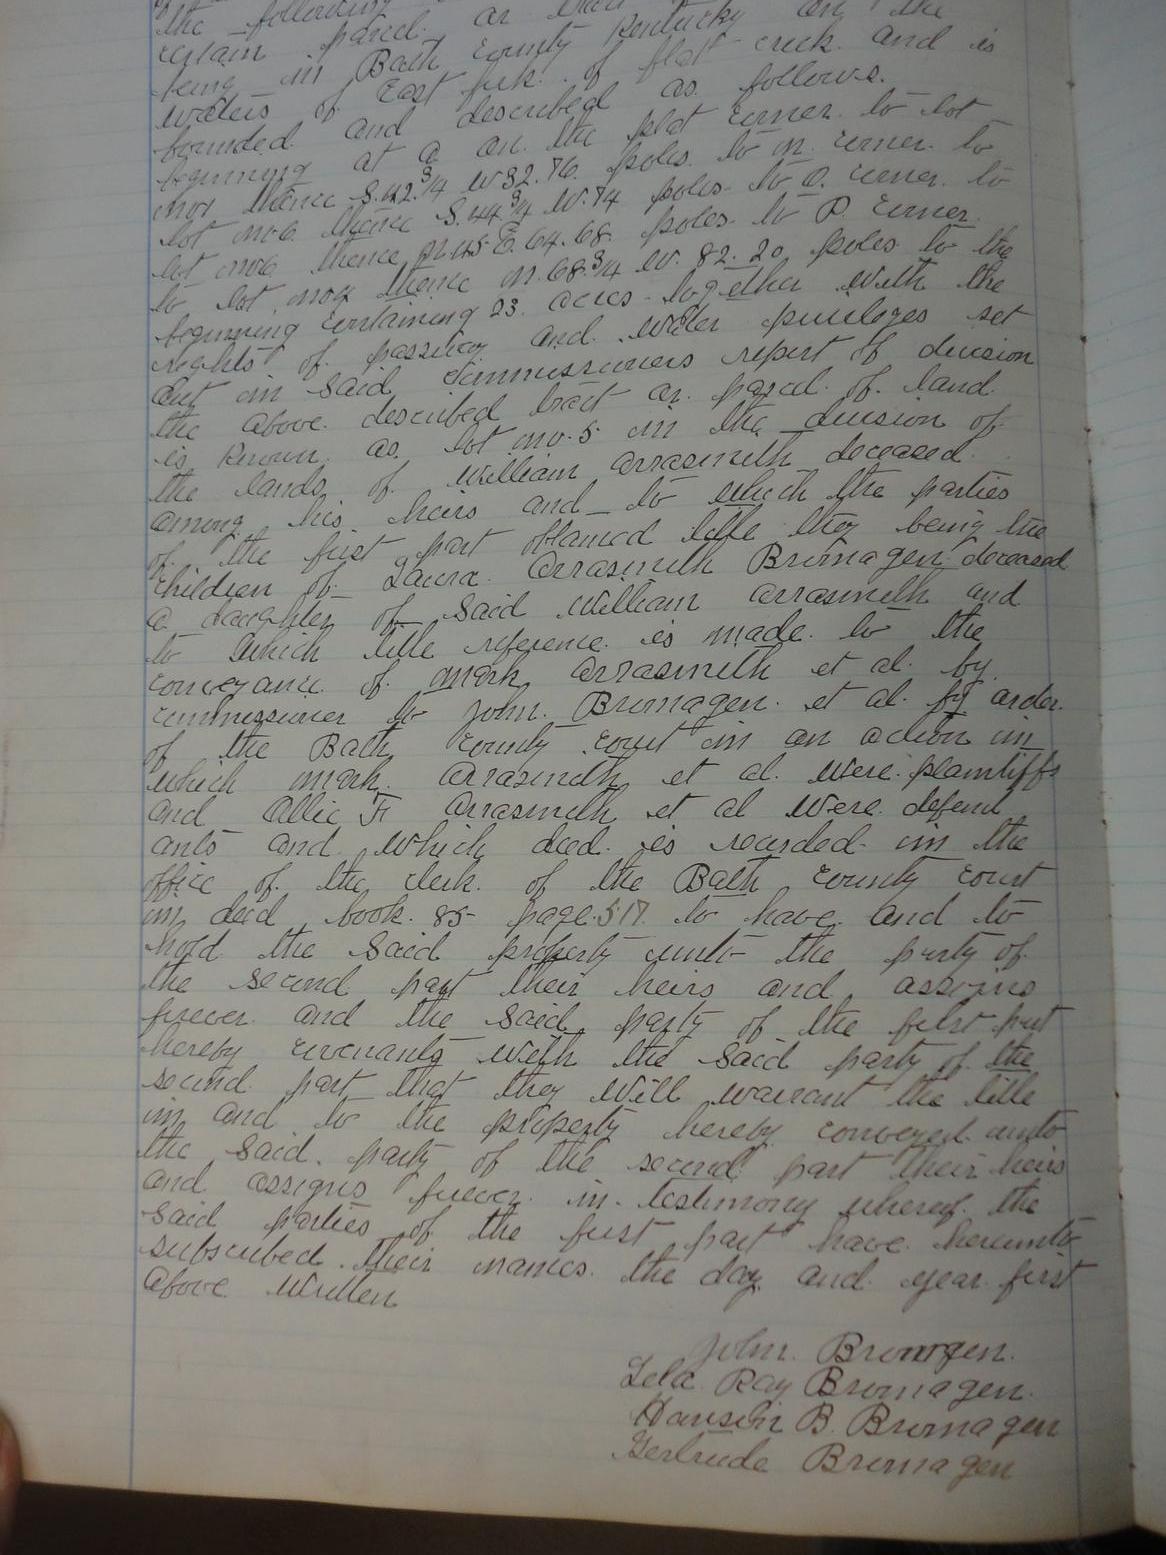 the following
certain parcel or tract
being in Bath County Kentucky on the
waters of East fork of flat creek and is
bounded and described as follows.
beginning at a on the plat corner to lot
no 4 thence S. 42 3/4 W 32.76 poles to n. corner to
lot no 6 thence S. 44 3/4 W. 74 poles to O. corner to
lot no 6 thence N 45 E. 64.68 poles to P. corner
to lot no 4 thence N. 68 3/4 W. 82.20 poles to the
beginning containing 23 acres together with the
rights of passway and water privileges set
out in said Commissioners report of division
the above described tract or parcel of land
is known as lot no. 5 in the division of
the lands of William Arrasmith deceased
among his heirs and to which the parties
of the first part obtained title they being the
children of Laura Arrasmith Bromagen deceased
a daughter of said William Arrasmith and
to which title reference is made to the
conveyance of mark Arrasmith et al. by
commissioner to John. Bromagen. et al. by order
of the Bath County court in an action in
which mark Arrasmith et al. were plaintiffs
and Allie F Arrasmith et al were defend
ants and which deed is recorded in the
office of the clerk of the Bath County Court
in deed book. 85 page 517 to have and to
hold the said property unto the party of
the second part their heirs and assigns
forever and the said party of the first part
hereby covenants with the said party of the
second part that they will warrant the title
in and to the property hereby conveyed unto
the said party of the second part their heirs
and assigns forever in testimony whereof the
said parties of the first part have hereunto
subscribed their names the day and year first
above written
John. Bromgen.
Lela Ray Bromagen.
B. Bromagen
Gertrude Bromagen